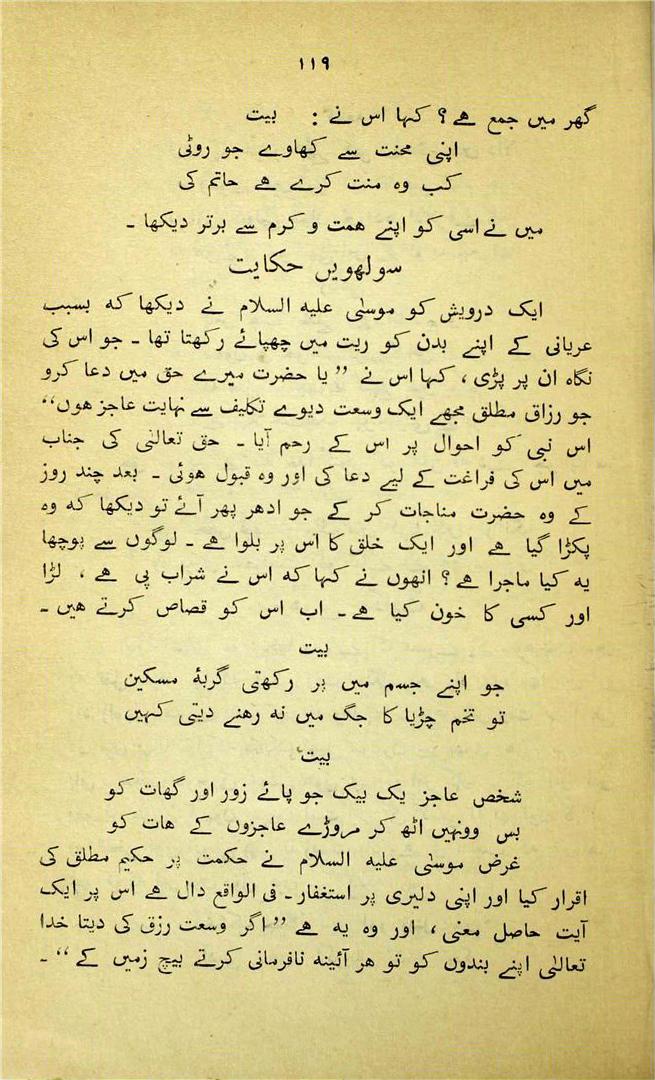 ۱۱۹
گھر میں جمع ہے؟ کہا اس نے : بیت
اپنی محنت سے کھاوے جو روٹی
کب وہ منت کرے ہے حاتم کی
میں نے اسی کو اپنے ہمت و کرم سے برتر دیکھا ۔
سولھویں حکایت
ایک درویش کو موسیٰ علیہ السلام نے دیکھا کہ بسبب
عریانی کے اپنے بدن کو ریت میں چھپائے رکھتا تھا ۔ جو اس کی
نگاہ ان پر پڑی ، کہا اس نے ” یا حضرت میرے حق میں دعا کرو
جو رزاق مطلق مجھے ایک وسعت دیوے تکلیف سے نہایت عاجز ہوں“
اس نبی کو احوال پر اس کے رحم آیا ۔ حق تعالیٰ کی جناب
میں اس کی فراغت کے لیے دعا کی اور وہ قبول ہوئی ۔ بعد چند روز
کے وہ حضرت مناجات کر کے جو ادھر پھر آئے تو دیکھا کہ وہ
پکڑا گیا ہے اور ایک خلق کا اس پر بلوا ہے ۔ لوگوں سے پوچھا
یہ کیا ماجرا ہے؟ انھوں نے کہا کہ اس نے شراب پی ہے ، لڑا
اور کسی کا خون کیا ہے ۔ اب اس کو قصاص کرتے ہیں ۔
بیت
جو اپنے جسم میں پر رکھتی گربۂ مسکین
تو تخم چڑیا کا جگ میں نہ رہنے دیتی کہیں
بیت
شخص عاجز یک بیک جو پائے زور اور گھات کو
بس ووںہیں اٹھ کر مروڑے عاجزوں کے ہات کو
غرض موسیٰ علیہ السلام نے حکمت پر حکیم مطلق کی
اقرار کیا اور اپنی دلیری پر استغفار ۔ فی الواقع دال ہے اس پر ایک
آیت حاصل معنی ، اور وہ یہ ہے ” اگر وسعت رزق کی دیتا خدا
تعالیٰ اپنے بندوں کو تو ہر آئینہ نافرمانی کرتے بیچ زمیں کے “ ۔